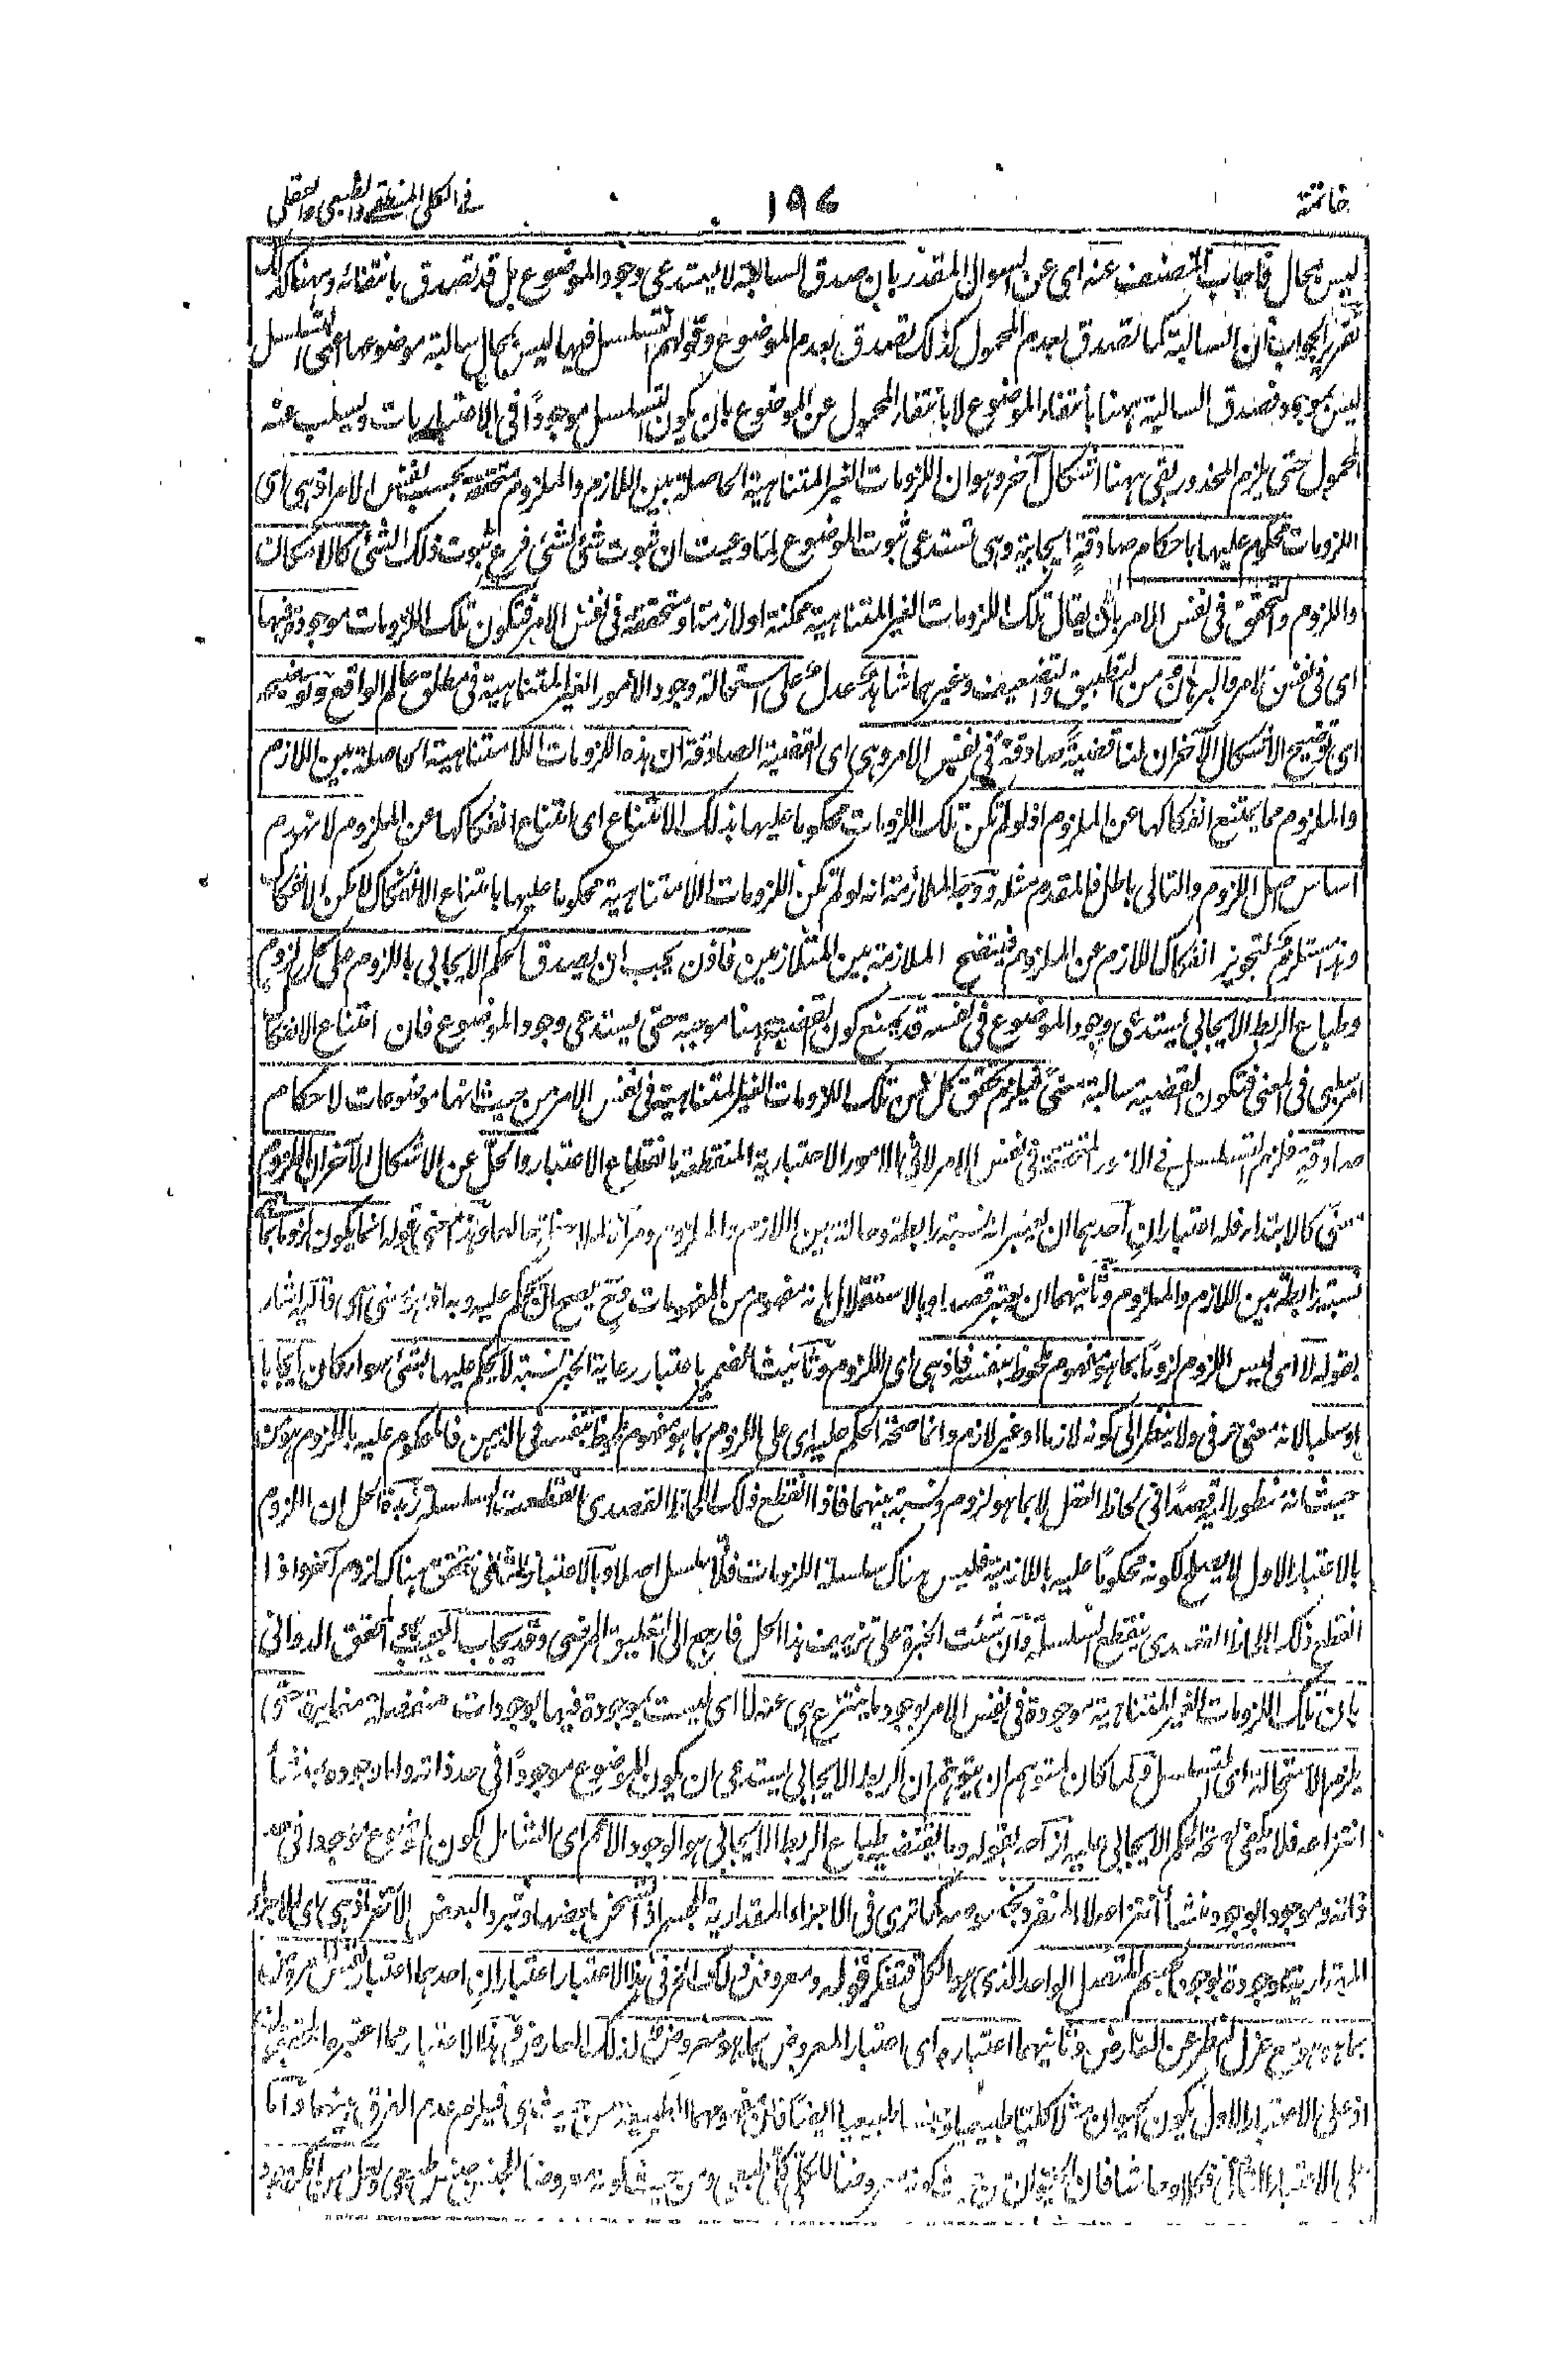 خاتمة ١٩٤ في الكلي المنطقي والطبيعي والعقلي
ليس بمحال فاجاب المصنف عنه اي عن السوال المقدر بان صدق السالبة لا يستدعي وجود الموضوع بل قد تصدق بانتفائه وههنا كذلك
تقرير الجواب ان السالبة كما تصدق بعدم المحمول كذلك تصدق بعدم الموضوع وقولهم التسلسل فيها ليس بمحال سالبة موضوعها اعني التسلسل
ليس بموجود فصدق السالبة ههنا بانتفاء الموضوع لا بانتفاء المحمول عن الموضوع بان يكون التسلسل موجودًا في الاعتباريات ويسلب عنه
المحمول حتى يلزم المحذور بقي ههنا اشكال آخر وهو ان اللزومات الغير المتناهية الحاصلة بين اللازم والملزوم متحققة بحسب نفس الامر اذ هي اي
اللزومات محكوم عليها باحكام صادقةٍ ايجابية وهي تستدعي ثبوت الموضوع لما وعيت ان ثبوت شئ لشئ فرع ثبوت ذلك الشئ كالامكان
واللزوم والتحقق في نفس الامر بان يقال تلك اللزومات الغير المتناهية ممكنة او لازمة او متحققة في نفس الامر فتكون تلك اللزومات موجودة فيها
اي في نفس الامر والبرهان من التطبيق والتضعيف وغيرهما شاهد عدل على استحالة وجود الامور الغير المتناهية في مطلق عالم الواقع وتوضيحه
اي توضيح الاشكال الآخر ان لنا قضيةً صادقةً في نفس الامر وهي اي القضية الصادقة ان هذه اللزومات اللامتناهية الحاصلة بين اللازم
والملزوم مما يمتنع انفكاكها عن الملزوم اذ لو لم تكن تلك اللزومات محكوما عليها بذلك الامتناع اي امتناع انفكاكها عن الملزوم لانهدم
اساس اصل اللزوم والتالي باطل فالمقدم مثله ووجه الملازمة انه لو لم تكن اللزومات اللامتناهية محكوما عليها بامتناع الانفكاك لامكن الانفكاك
وهذا مستلزم لتجويز انفكاك اللازم عن الملزوم فينفسخ الملازمة بين المتلازمين فاذن يجب ان يصدق الحكم الايجابي باللزوم على كل لزوم
وطباع الربط الايجابي يستدعي وجود الموضوع في نفسه قد يمنع كون القضية ههنا موجبة حتى يستدعي وجود الموضوع فان امتناع الانفكاك
امر سلبي في المعنى فتكون القضية سالبة معنىً فيلزم تحقق كل من تلك اللزومات الغير المتناهية في نفس الامر من حيث انها موضوعات لاحكام
صادقةٍ فلزم التسلسل في الامور المتحققة في نفس الامر لا في الامور الاعتبارية المنقطعة بانقطاع الاعتبار والحل عن الاشكال الآخر ان اللزوم
معنى كالابتداء فله اعتباران احدهما ان يعتبر انه نسبة رابطة وحالة بين اللازم والملزوم ومرآة لملاحظة حالهما وهذا معنى قوله انما يكون لزوما بما هو
نسبة رابطة بين اللازم والملزوم وثانيهما ان يعتبر قصدا وبالاستقلال بانه مفهوم من المفهومات وح يصح ان يحكم عليه وبه
بقوله لا اي ليس اللزوم لزومًا بما هو مفهوم ملحوظ بنفسه فاذ هي اي اللزوم وتأنيث الضمير باعتبار رعاية الخبر نسبة لا يحكم عليها بشئ سواء كان ايجابا
او سلبا لانه معنى حرفي ولا ينظر الى كونه لازما او غير لازم وانما صحة الحكم عليه اي على اللزوم بما هو مفهوم ملحوظ بنفسه في الذهن فالمحكوم عليه باللزوم هو من
حيث انه منظور اليه قصدًا في لحاظ العقل لا بما هو لزوم ونسبة بينهما فاذا انقطع ذلك اللحاظ القصدي انقطعت السلسلة زبدة الحل ان اللزوم
بالاعتبار الاول لا يصلح لكونه محكومًا عليه باللازمية فليس هناك سلسلة اللزومات فلا تسلسل اصلا وبالاعتبار الثاني يتحقق هناك لزوم آخر واذا
انقطع ذلك اللحاظ القصدي ينقطع السلسلة وان شئت الخبرة على تزييف هذا الحل فارجع الى التعليق المرضي وقد يجاب المجيب المحقق الدواني
بان تلك اللزومات الغير المتناهية موجودة في نفس الامر بوجود ما ينتزع هي عنه لا اي ليست بموجودة فيها بوجودات منفصلة متغايرة حتى
يلزم الاستحالة اي التسلسل ولما كان لمتوهم ان يتوهم ان الربط الايجابي يستدعي ان يكون الموضوع موجودًا في حد ذاته واما وجوده بمنشأ
انتزاعه فلا يكفي لصحة الحكم الايجابي عليه ازاحه بقوله وما يقتضيه طباع الربط الايجابي هو الوجود الاعم اي الشامل لكون الموضوع موجودا في حد
ذاته وموجودا بوجود منشأ انتزاعه لا المتفرد بخصوصه كما ترى في الاجزاء المقدارية للجسم
المقدارية موجودة بوجود الجسم المتصل الواحد الذي هو الكل فتفكر قوله ومعروض ذلك الخ في هذا الاعتبار اعتباران احدهما اعتبار نفس معروضه
بما هو هو مع عزل النظر عن العارض وثانيهما اعتباره اي اعتبار المعروض بما هو معروض لذلك العارض في هذا الاعتبار مما اعتبره
اذ على الاعتبار الاول يكون الحيوان مثلا كليًا طبيعيا وجنسا طبيعيا ايضًا فيلزم عدم الفرق بينهما واما
على الاعتبار الثاني فكلا وحاشا فان الحيوان من حيث كونه معروضا للكلي كلي طبيعي ومن حيث كونه معروضا للجنس جنس طبيعي